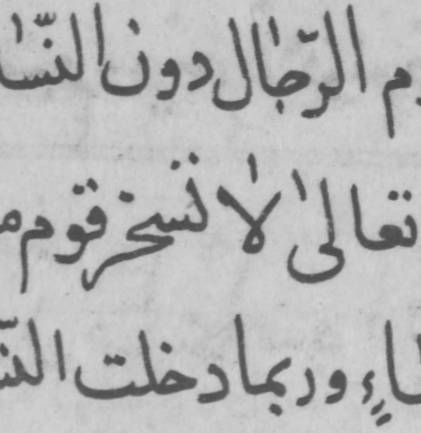 م الرّجال دون النّسا
تعالى لا تسخر قوم م
ساءٍ وربما دخلت النّ